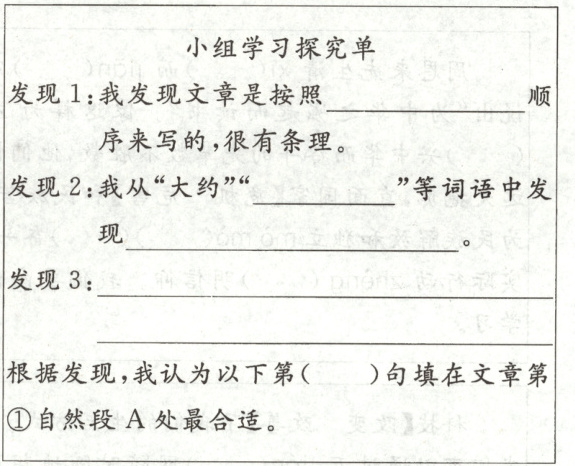 小组学习探究单
发现1:我发现文章是按照 顺
序来写的,很有条理。
发现2:我从“大约”“________”等词语中发
现________________。
发现3:________________
________________
根据发现,我认为以下第( )句填在文章第
①自然段 A 处最合适。